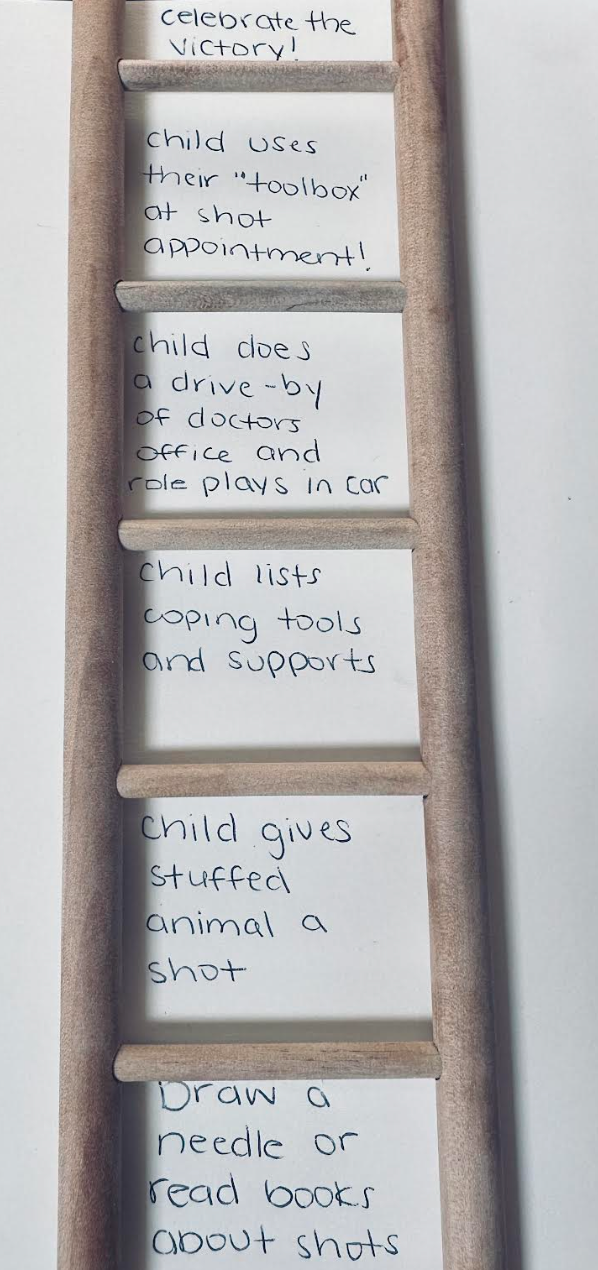 celebrate the
victory!
child uses
their "toolbox"
at shot
appointment!
child does
a drive-by
of doctors
office and
role plays in car
child lists
coping tools
and supports
child gives
stuffed
animal a
shot
Draw a
needle or
read books
about shots